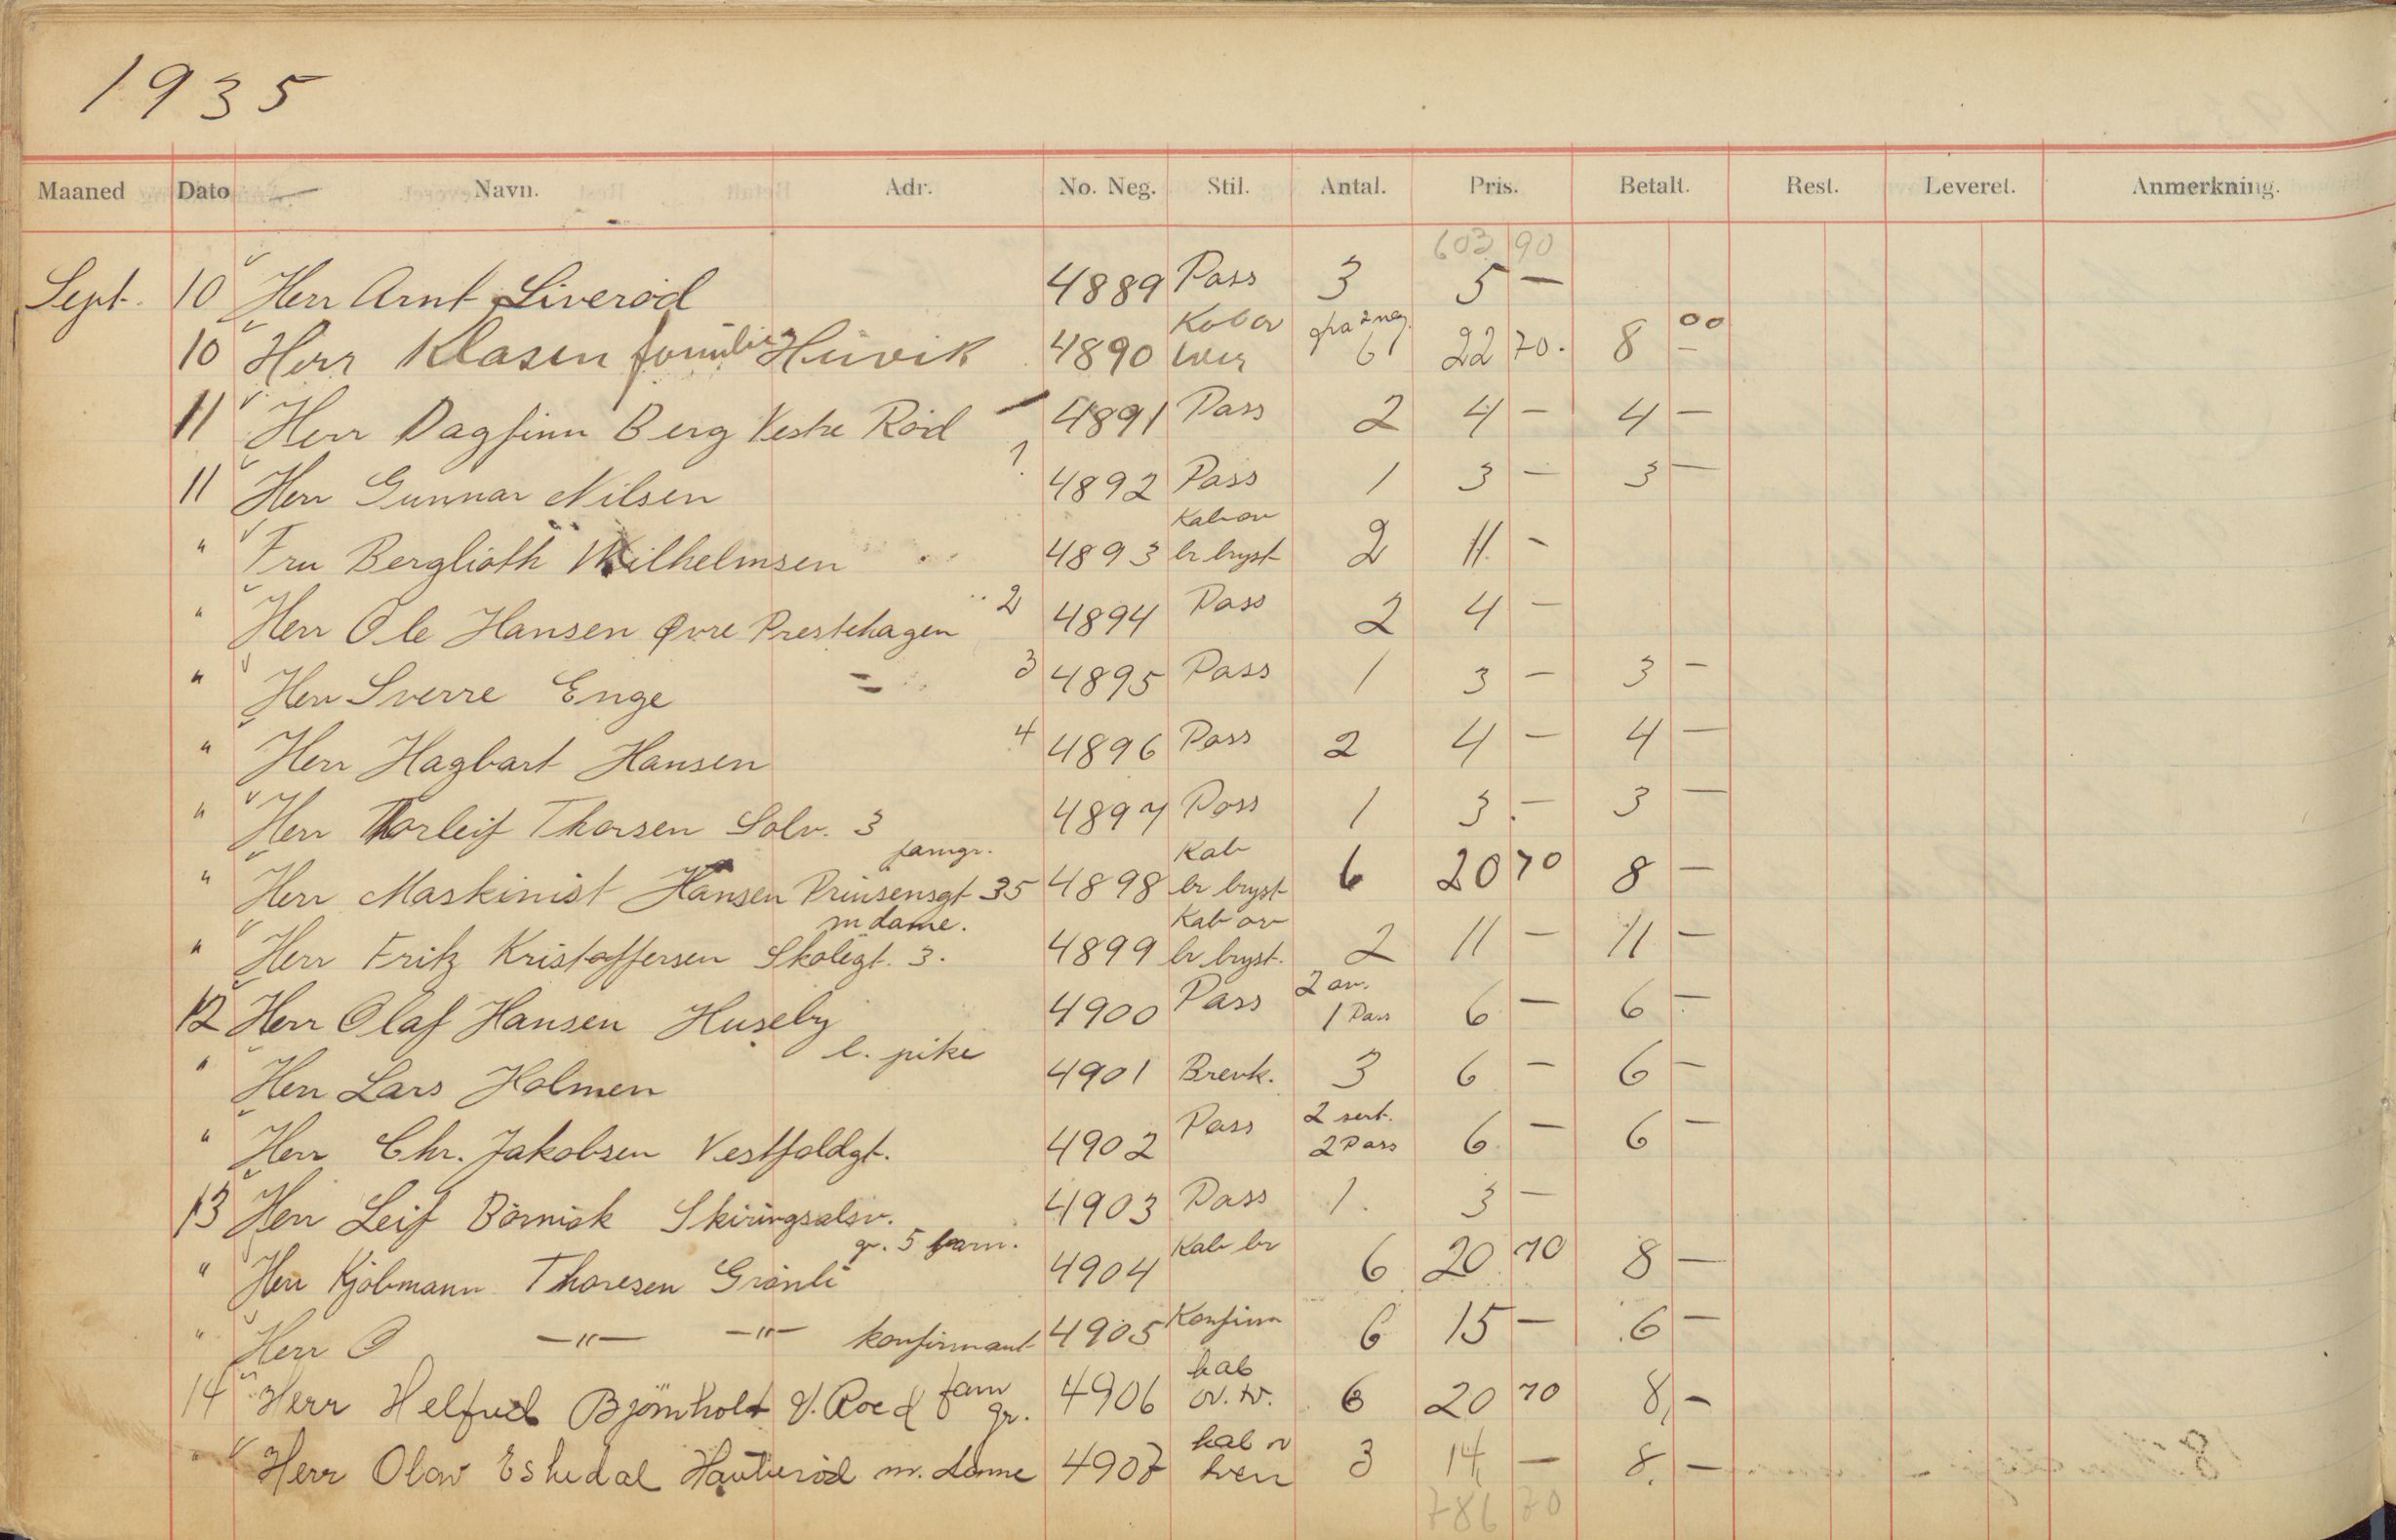 1935
Maaned Dato Navn. Adr. No. Neg. Stil. Antal. Pris. Betalt. Rest. Leveret. Anmerkning.
603 90
Sept. 10 Herr Arnt Liverød 4889 Pass 3 5 —
Kab ov 2 neg. 00
10 Herr Klasen familie 4890 6 22 70. 8 —
11 Herr Dagfinn Berg Vestre Röd 4891 Pass 2 4 — 4 —
1
11 Herr Gunnar Nilsen 4892 Pass 1 3 — 3 —
Kab ov
" Fru Berglioth Wilhelmsen 4893 br bryst 2 11 -
" Herr Ole Hansen Øvre Prestehagen 2 4894 Pass 2 4 —
" Herr Sverre Enge = 3 4895 Pass 1 3 — 3 —
" Herr Hagbart Hansen 4 4896 Pass 2 4 — 4 —
" Herr Thorleif Thorsen Solv. 3 4897 Pass 1 3 — 3 —
famgr. Kab
" Herr Maskinist Hansen Prinsensgt 35 4898 br bryst 6 20 70 8 —
m dame. Kab ov
" Herr Fritz Kristoffersen Skolegt. 3. 4899 br bryst. 2 11 — 11 —
2 ov.
12 Herr Olaf Hansen Huseby 4900 Pass 1 Pass 6 — 6 —
l. pike
" Herr Lars Holmen 4901 Brevk. 3 6 — 6 —
2 sert.
" Herr Chr. Jakobsen Vestfoldgt. 4902 Pass 2 Pass 6 — 6 —
13 Herr Leif Börnick Skiringsalsv. 4903 Pass 1. 3 —
gr. 5 barn. Kab br
" Herr Kjöbmann Thoresen Grönli 4904 6 20 70 8 —
" Herr O —"— —"— konfirmant 4905 Konfirm 6 15 — 6 —
fam kab
14 Herr Björnholt V. Roed gr. 4906 ov. tv. 6 20 70 8, —
kab
" Herr Olav m. dame 4907 3 14, — 8. —
786 70